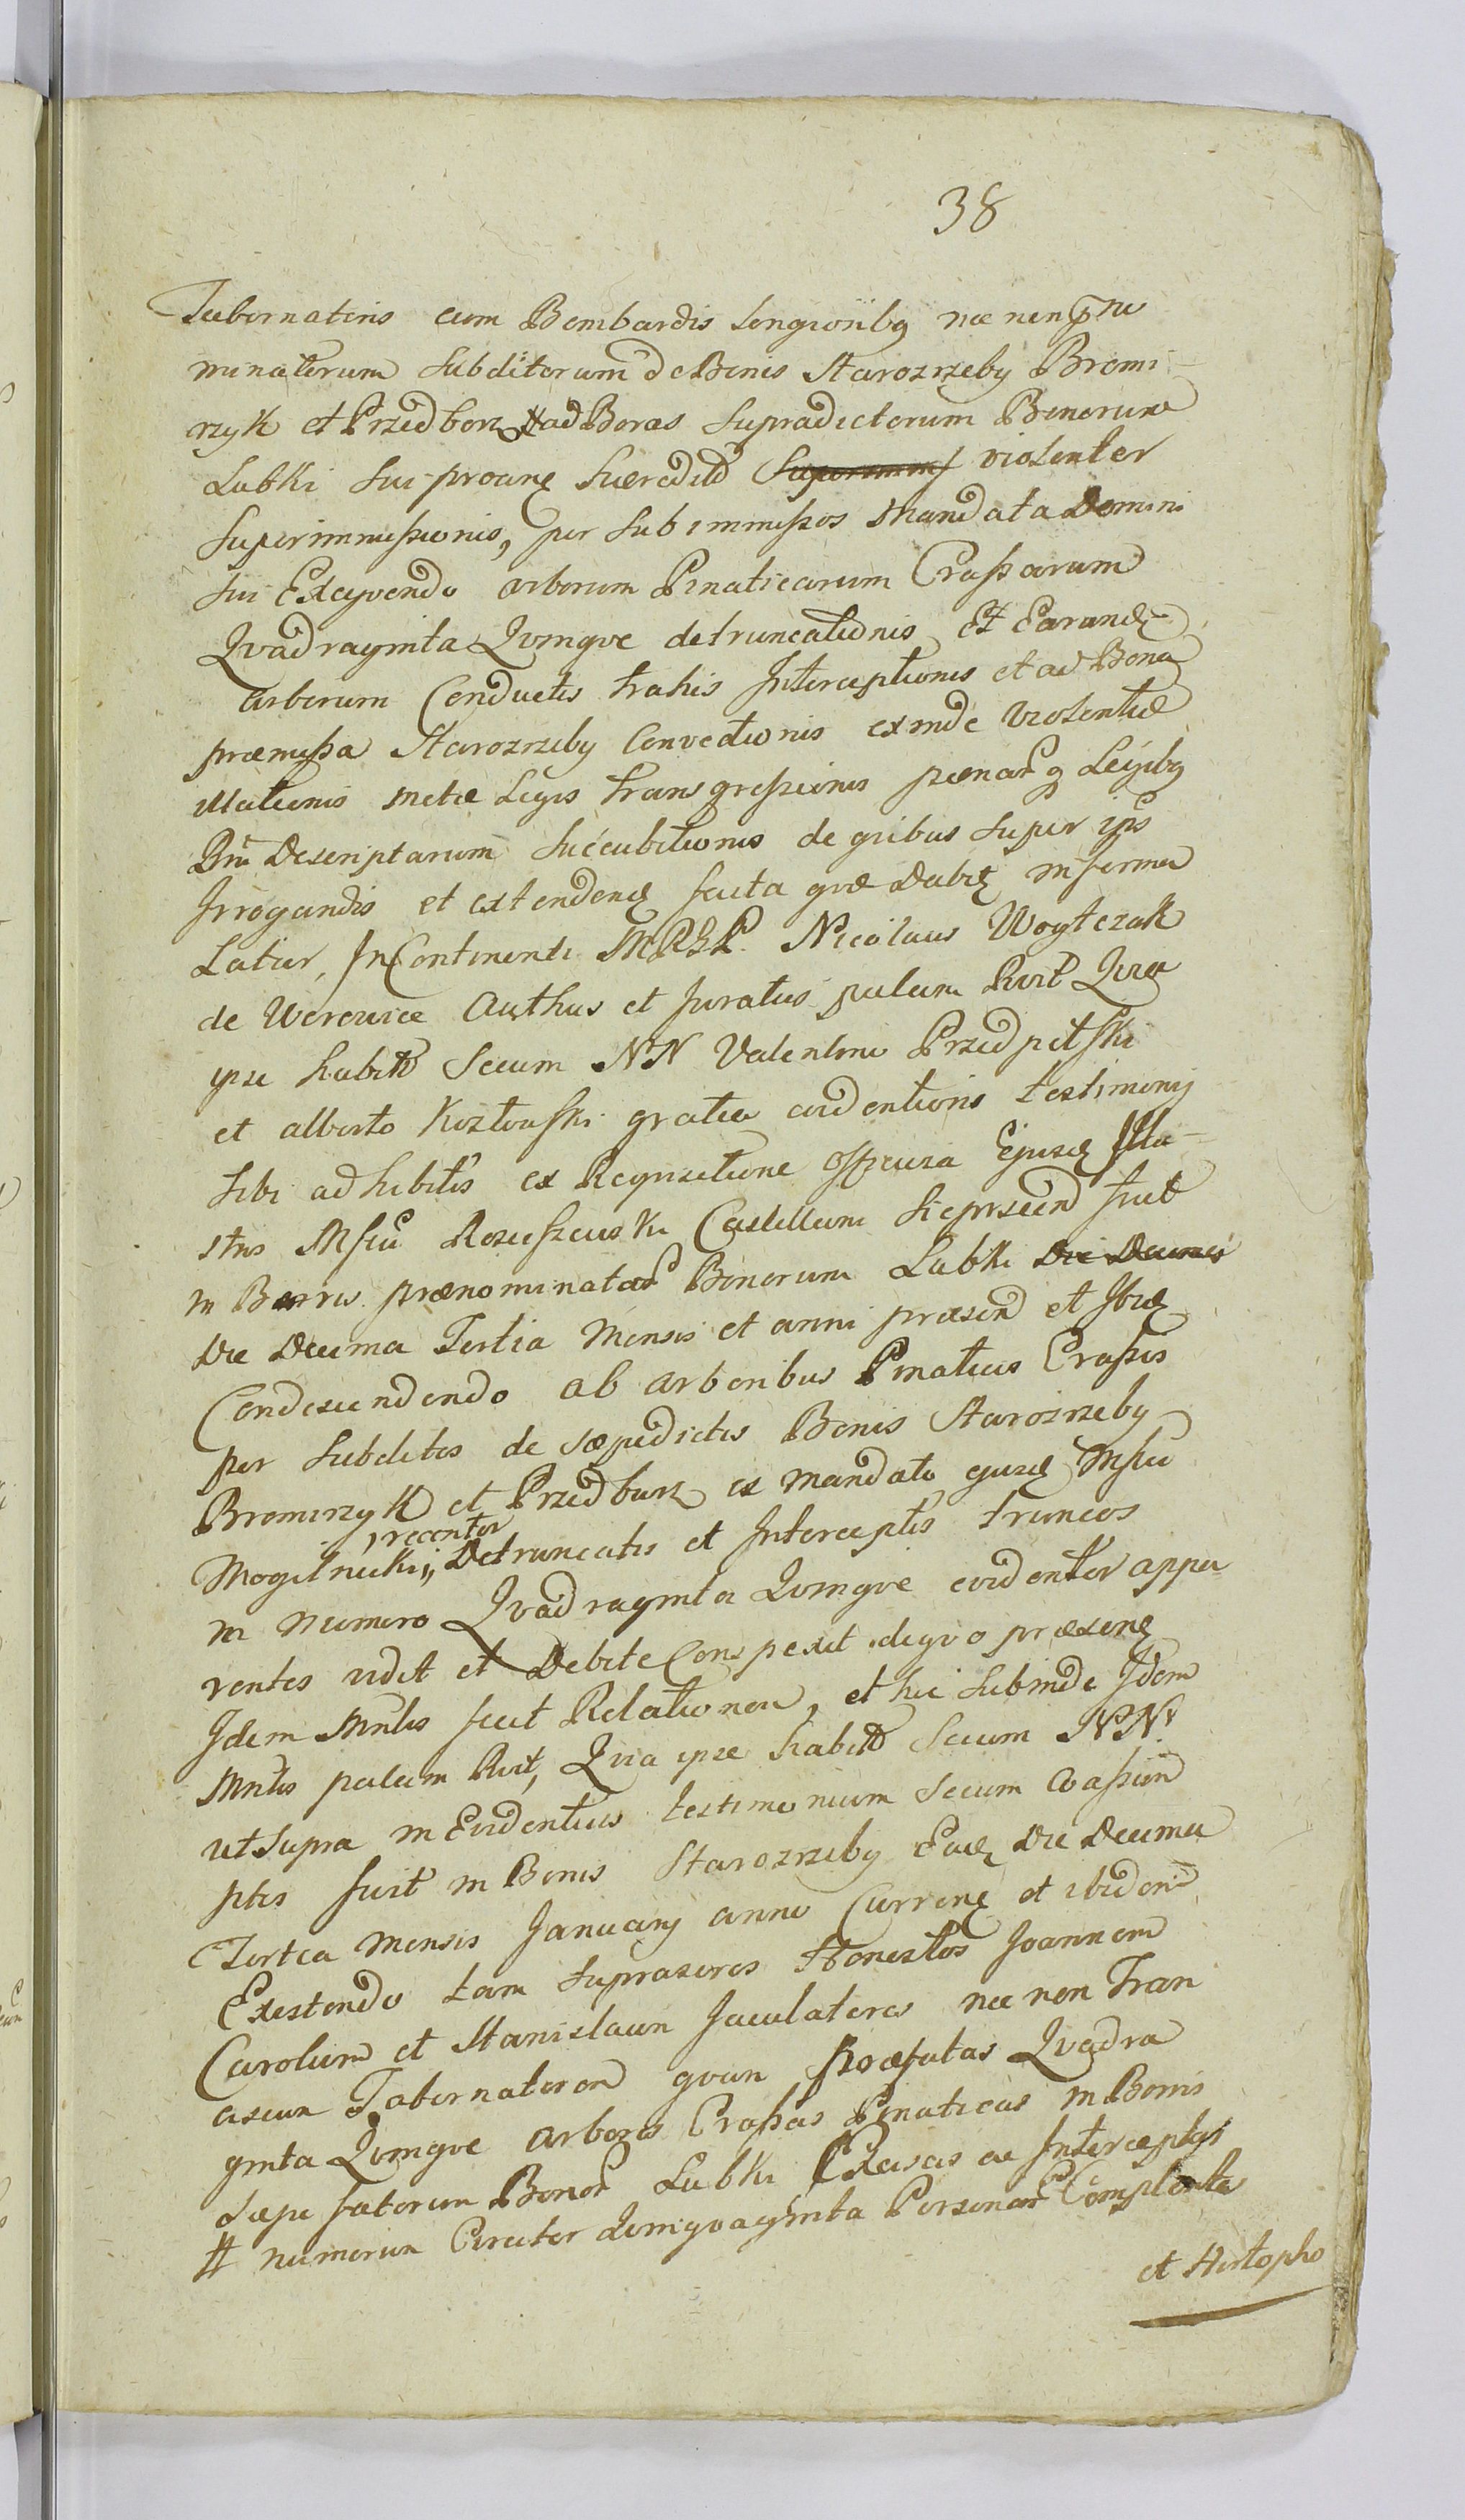 38
Tabernatoris cum Bombardis Longioribq nec non
minatorum Subditorum de Bonis Starozrzeby Bromi-
rzyk et Przedborz # ad Boras Supradictorum Bonorum
Lubki violenter
Superimmissionis, per Subimmissos Mandata Domini
sui Exeqvendo arborum Pinaticarum Crassarum
Qvadraginta Qvinqve detruncationis Et Earund
arborum Conductis trahis Interceptionis et ad Bona
præmissa Starozrzeby Convectionis exinde violentiæ
illationis metæ Legis transgressionis pænarq Legibq
Descriptarum Succubitionis de qvibus super ips
Irrogandis et extendend facta qvæ dabit in forma
Latius, In Continenti MRGP. Nicolaus Woytczak
de Worowice Authus et Juratus palam Rvit Qvia
ipse habitis Secum NN Valentino Przedpełski
et alberto Kozłowski gratia evidentioris testimonij
sibi adhibitis ex Reqvisitione Officiosa Ejusd
Rosciszewski Castellani fuit
in Borris prænominatar Bonorum Lubki Die Decima
Die Decima Tertia Mensis et anni præsen et Ibid
Condescendendo ab arboribus Pinaticis Crassis
per Subditos de sæpedictis Bonis Starozrzeby
Bromirzyk et Przedborz ex mandato ejusd Mfci
Mogilnicki, recenter Detruncatis et Interceptis truncos
in Numero Qvadraginta Qvinqve evidenter appa
rentes vidit et Debite Conspexit. deqvo præsent
Idem Mnlis fecit Relationem, et hic Subinde Idem
Mnlis palam Rvit, Qvia ipse habitis Secum NN.
ut Supra in Evidentius testimonium Secum Assum
ptis fuit in Bonis Starozrzeby Ead Die Decima
Tertia Mensis Januarij anni Curren et ibidem
Existendo tam Honestos Joannem
Carolum et Stanislaum Jaculatores nec non Fran
ciscum Tabernatorem qvam præfatas Qvadra
ginta Qvinqve arbores Crassas Pinaticas in Borris
sæpe fatorum Bonor Lubki Excisas ac Interceptas
# numerum Circiter Qvinqvaginta Personar Complente
et Hertopho